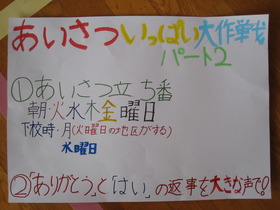 あいさついっぱい大作戦
パート2
①あいさつ立ち番
朝・火水木金曜日
下校時・月(火曜日の地区がする)
水曜日
②「ありがとう」と「はい」の返事を大きな声で!